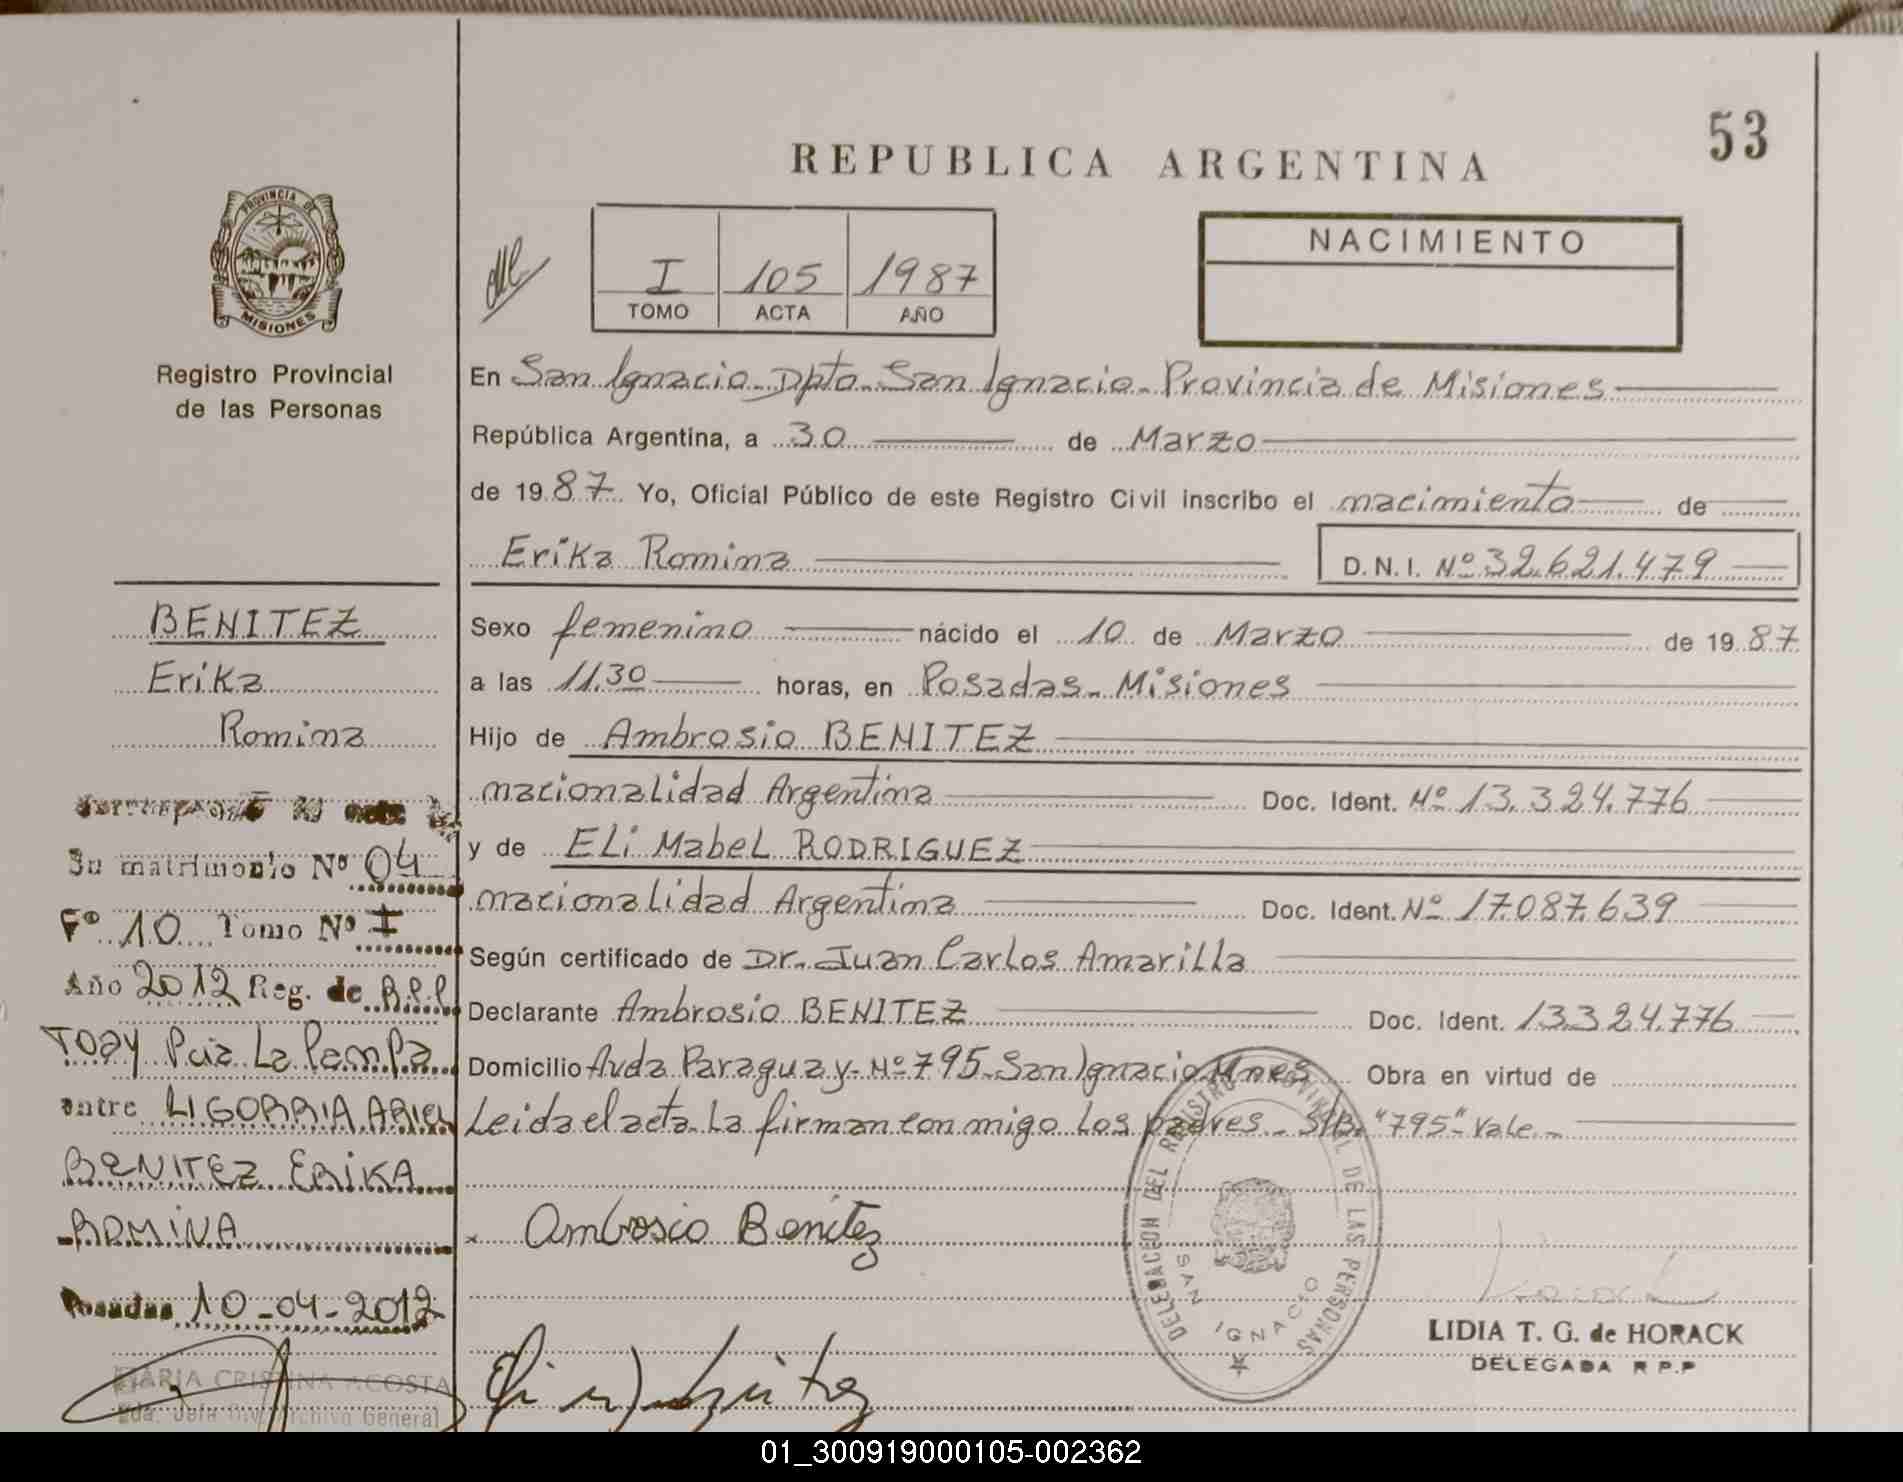 53
REPUBLICA ARGENTINA
PROVINCIA DE
MISIONES
Registro Provincial
de las Personas
I 105 1987
TOMO ACTA AÑO
NACIMIENTO
En San Ignacio-Dpto-San Ignacio-Provincia de Misiones
República Argentina, a 30 de Marzo
de 1987 Yo, Oficial Público de este Registro Civil inscribo el nacimiento de
Erika Romina D.N.I. Nº 32.621.479
Sexo femenino nácido el 10 de Marzo de 1987
a las 11.30 horas, en Posadas-Misiones
Hijo de Ambrosio BENITEZ
nacionalidad Argentina Doc. Ident. Nº 13.324.776
y de ELi MabeL RODRIGUEZ
nacionalidad Argentina Doc. Ident. Nº 17.087.639
Según certificado de Dr. Juan Carlos Amarilla
Declarante Ambrosio BENITEZ Doc. Ident. 13.324.776
Domicilio Avda Paraguay-Nº 795-San Ignacio Mnes Obra en virtud de
Leida el acta La firman con migo Los padres- S/B. "795" Vale-
Ambrosio Benitez
DELEGACION DEL REGISTRO PROVINCIAL DE LAS PERSONAS
SAN IGNACIO
LIDIA T. G. de HORACK
DELEGADA R P.P
BENITEZ
Erika
Romina
su matrimonio Nº 04
Fº 10 Tomo Nº I
Año 2012 Reg. de R.P.P
TOAY Pcia La Pampa
entre LIGORRIA ARIEL
BENITEZ ERIKA
ROMINA
Posadas 10-04-2012
MARIA CRISTINA ACOSTA
Archivo General
01_300919000105-002362